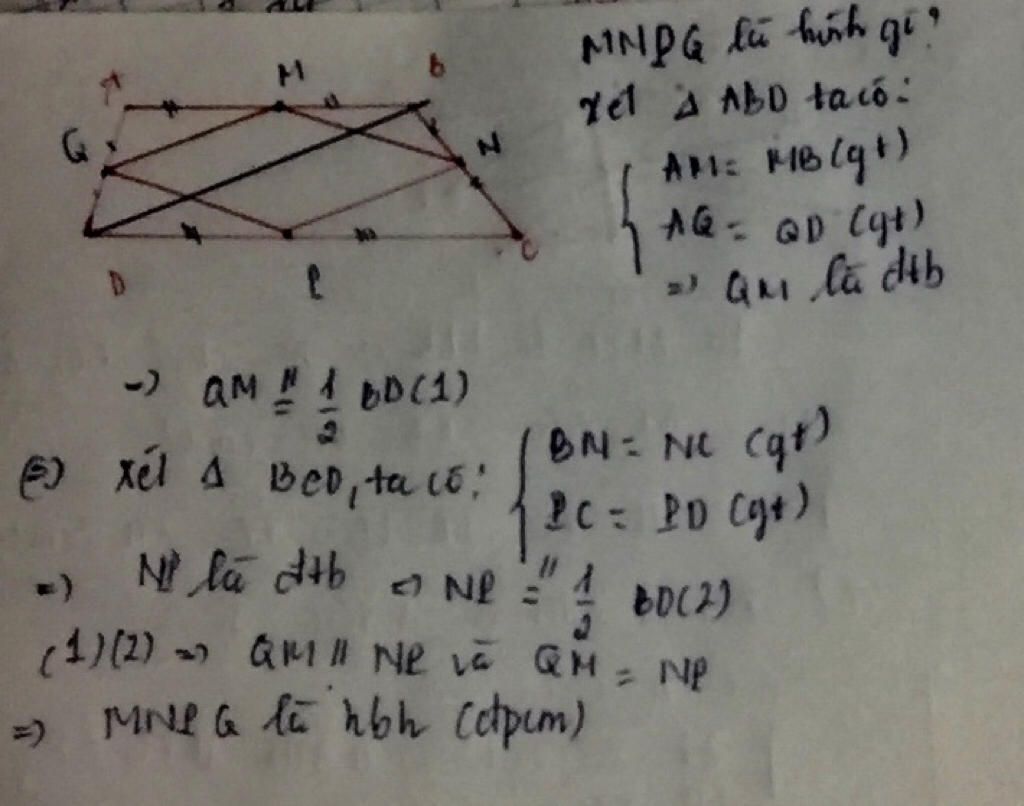 A M B
Q N
D P C
MNPQ là hình gì?
xét Δ ABD ta có:
AM = MB (gt)
AQ = QD (gt)
=> QM là đtb
-> QM //= 1/2 BD (1)
xét Δ BCD, ta có:
BN = NC (gt)
PC = PD (gt)
=> NP là đtb => NP //= 1/2 BD (2)
(1)(2) => QM // NP và QM = NP
=> MNPQ là hbh (đpcm)